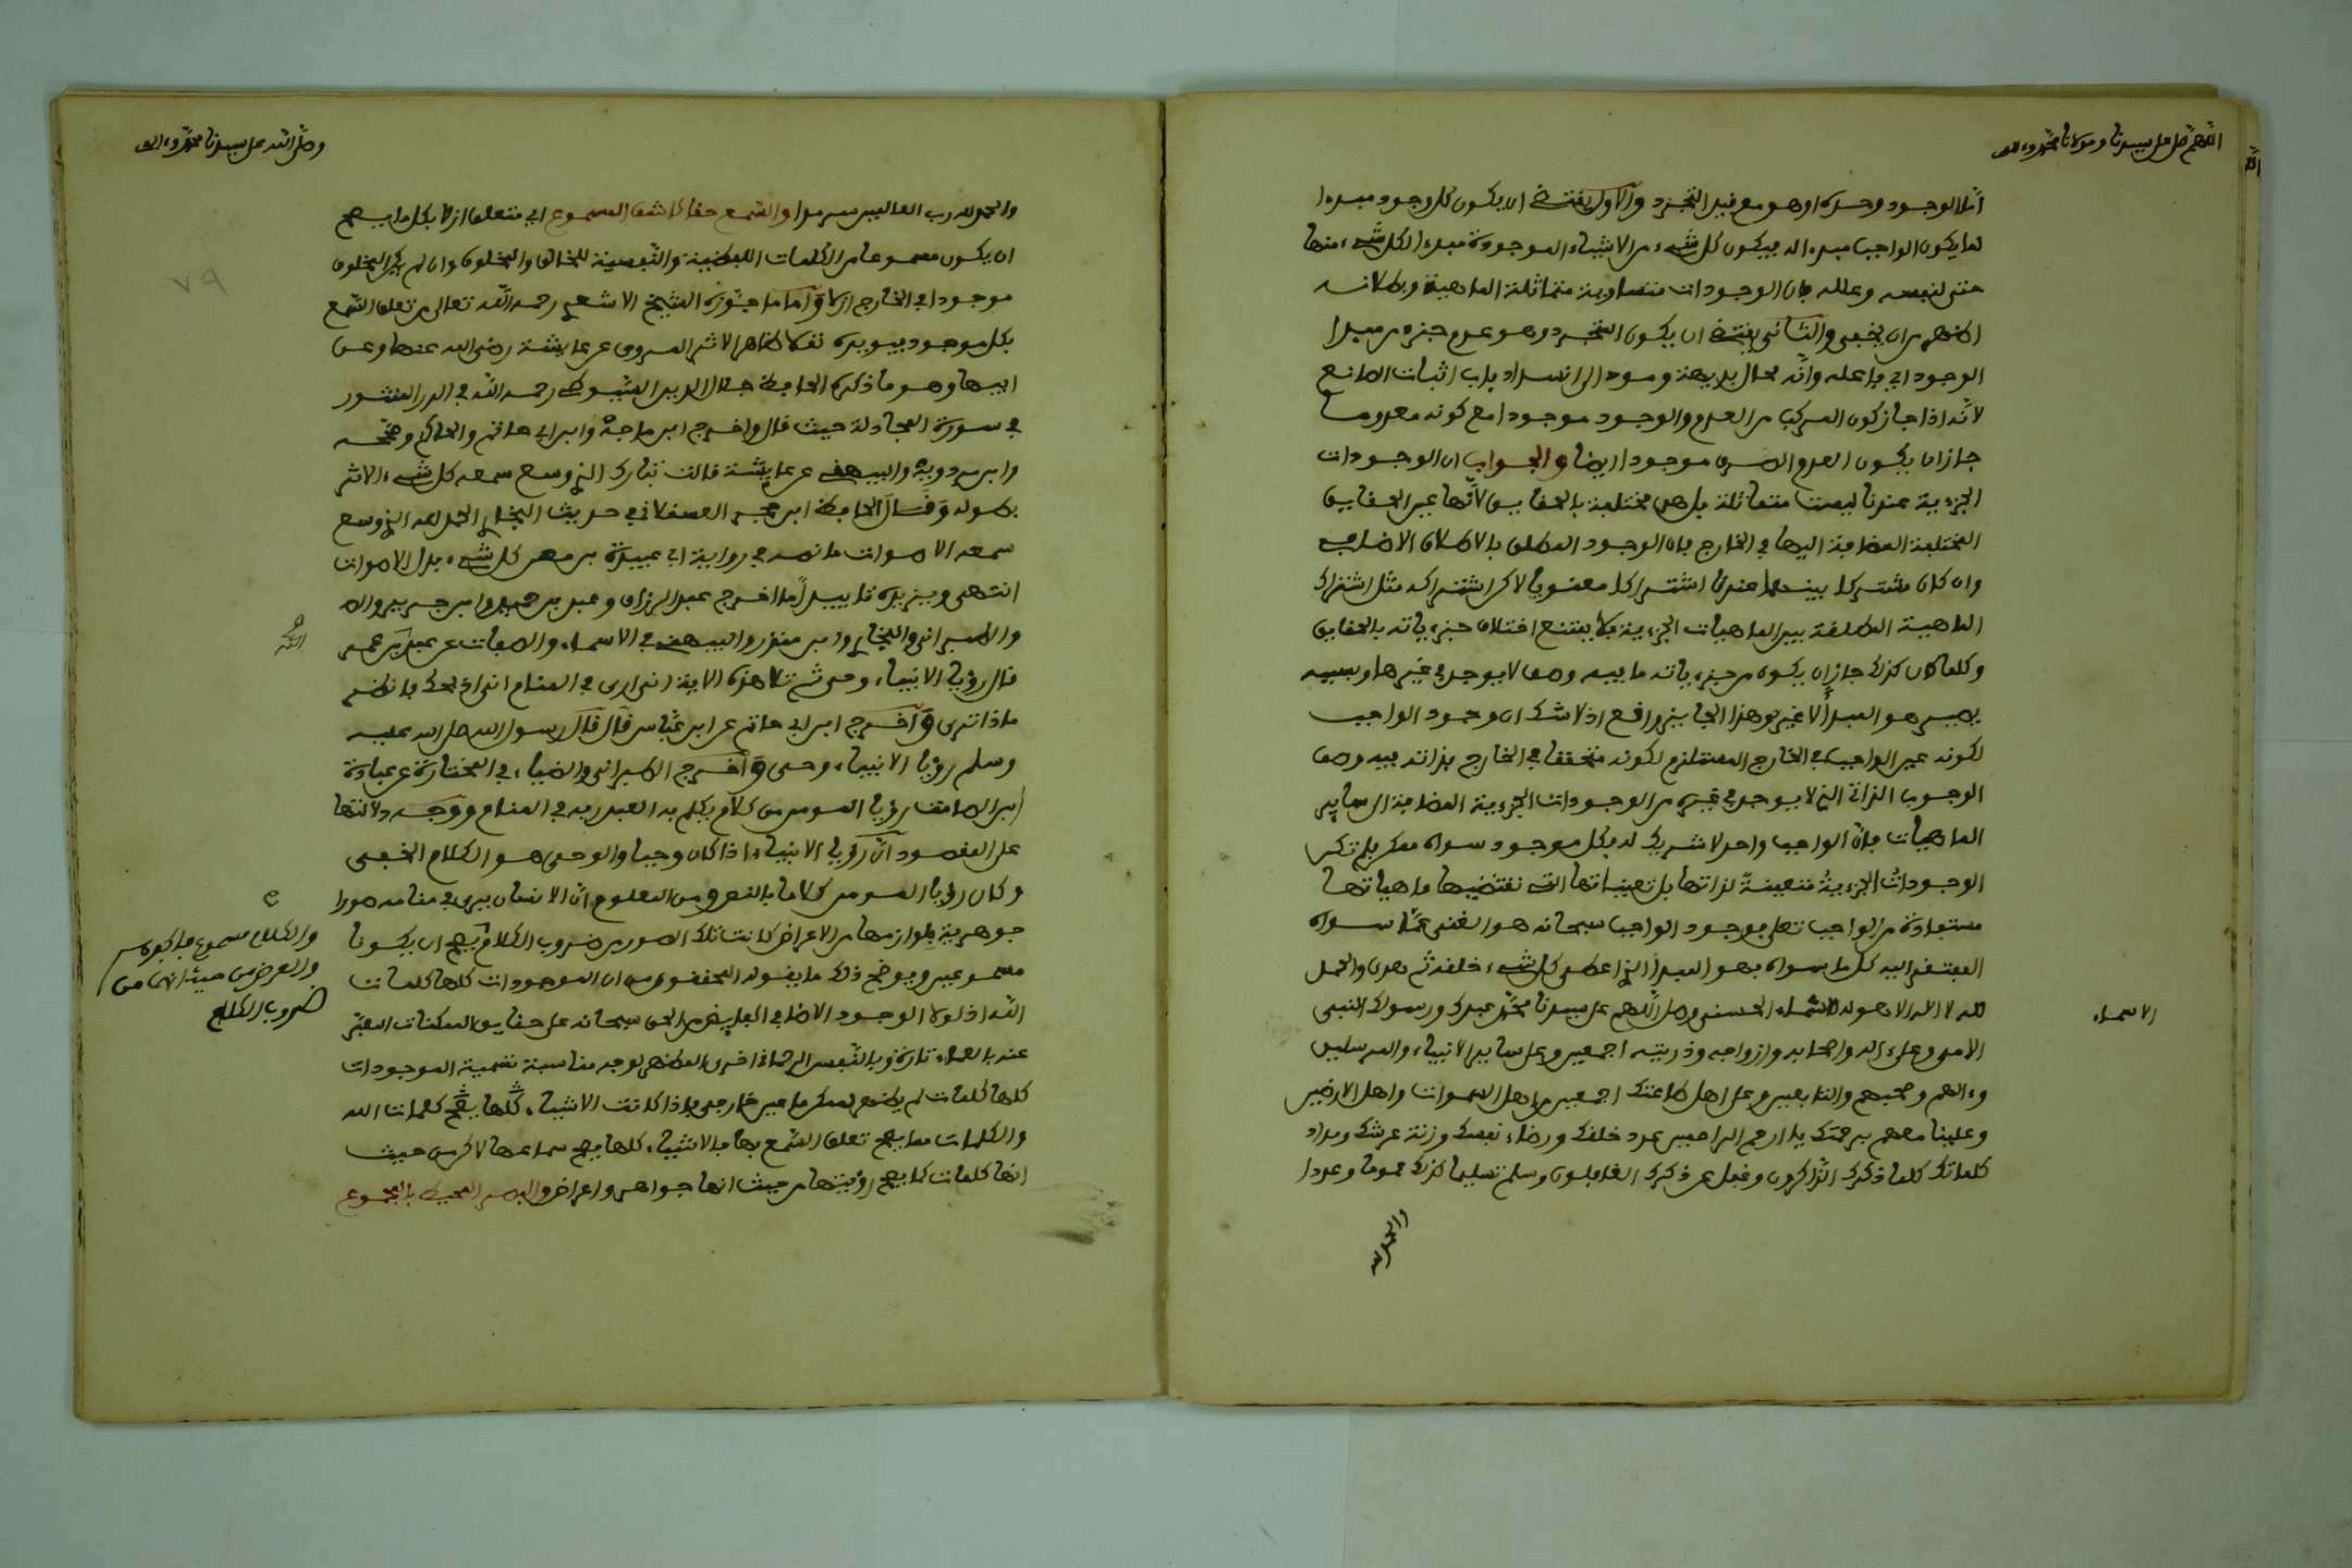 اللهم صل على سيدنا ومولانا محمد وءاله
اما الوجود وحده او هو مع قيد التجرد والاول يقتضي ان يكون كل وجود مبدءا
لما يكون الواجب مبدءا له فيكون كل شيء من الاشياء الموجودة مبدءا لكل شيء منها
حتى لنفسه وعلله فان الوجودات متساوية متماثلة الماهية وبطلانه
اظهر من ان يخفى والثاني يقتضي ان يكون التجرد وهو عدم جزء من مبدا
الوجود اي فاعله وانه محال بديهة ومود الى انسداد باب اثبات الصانع
لانه اذا جاز كون المركب من العدم والوجود موجودا مع كونه معدوما
جاز ان يكون العدم الصرف موجودا ايضا والجواب ان الوجودات
الجزءية عندنا ليست متماثلة بل هي مختلفة بالحقايق لانها عين الحقايق
المختلفة المضافة اليها في الخارج فان الوجود المطلق بالاطلاق الاضافي
وان كان مشتركا بينهما عندنا اشتراكا معنويا لاكن اشتراكه مثل اشتراك
الماهية المطلقة بين الماهيات الجزءية فلا يمتنع اختلاف جزءياته بالحقايق
وكلما كان كذلك جاز ان يكون من جزءياته ما فيه وصف لا يوجد في غيرها وبسببه
يصير هو المبدأ لا غير وهذا الجايز واقع اذ لا شك ان وجود الواجب
لكونه عين الواجب في الخارج المستلزم لكونه متحققا في الخارج بذاته فيه وصف
الوجوب الذاتي الذي لا يوجد في غيره من الوجودات الجزءية المضافة الى ساير
الماهيات فان الواجب واحد لا شريك له فكل موجود سواه ممكن فلم تكن
الوجوداتُ الجزءيةُ متعينةً لذاتها بل تعيناتها التي تقتضيها ماهياتها
مستفادة من الواجب تعلى فوجود الواجب سبحانه هو الغني عمّا سواه
المفتقر اليه كل ما سواه فهو المبدأ الذي اعطى كل شيء خلقه ثم هدى والحمد
لله لا اله الا هو له الاسماء الحسنى وصل اللهم على سيدنا محمد عبدك ورسولك النبي
الاسماء
الامي وعلى ءاله واصحابه وازواجه وذريته اجمعين وعلى ساير الانبياء والمرسلين
وءالهم وصحبهم والتابعين وعلى اهل طاعتك اجمعين من اهل السموات واهل الارضين
وعلينا معهم برحمتك يا ارحم الراحمين عدد خلقك ورضاء نفسك وزنة عرشك ومداد
كلماتك كلما ذكرك الذاكرون وغفل عن ذكرك الغافلون وسلم تسليما كذلك عموما وعددا
والحمد لله
وصلى الله على سيدنا محمد وءاله
والحمد لله رب العالمين سرمدا والسمع حقا كاشف المسموع اي متعلق ازلا بكل ما يصح
ان يكون مسموعا من الكلمات اللفظية والنفسية للخالق والمخلوق وان لم يكن المخلوق
٧٩
موجودا في الخارج ازلا واما ما جوزه الشيخ الاشعري رحمه الله تعالى من تعلق السمع
بكل موجود فيويده نقلا ظاهر الاثر المروي عن عايشة رضي الله عنها وعن
ابيها وهو ما ذكره الحافظ جلال الدين السيوطي رحمه الله في الدر المنثور
في سورة المجادلة حيث قال واخرج ابن ماجة وابن ابي حاتم والحاكم وصححه
وابن مردويه والبيهقي عن عايشة قالت تبارك الذي وسع سمعه كل شيء الاثر
بطوله وقال الحافظ ابن حجر العسقلاني في حديث البخاري الحمد لله الذي وسع
سمعه الاصوات ما نصه في رواية ابي عبيدة بن معن كل شيء بدل الاصوات
انتهى ويزيده تاييداً ما اخرج عبد الرزاق وعبد بن حميد وابن جرير والط
والطبراني والبخاري وابن منذر والبيهقي في الاسماء والصفات عن عبيد بن عمير
قال رؤيا الانبياء وحي ثم تلا هذه الاية اني ارى في المنام اني اذبحك فانظر
ماذا ترى واخرج ابن ابي حاتم عن ابن عباس قال قال رسول الله صلى الله عليه
وسلم رؤيا الانبياء وحي واخرج الطبراني والضياء في المختارة عن عبادة
ابن الصامت رؤيا المومن كلام يكلم به العبد ربه في المنام ووجه دلالتها
على المقصود ان رؤيا الانبياء اذا كان وحيا والوحي هو الكلام الخفي
وكان رؤيا المومن كلاما بالنص ومن المعلوم ان الانسان يرى في منامه صورا
جوهرية بلوازمها من الاعراض كانت تلك الصور من ضروب الكلام فيصح ان يكونا
والكلام مسموع فالجوهر
والعرض من حيث انهما من
ضروب الكلام
مسموعين ويوضح ذلك ما يقوله المحققون من ان الموجودات كلها كلمات
الله اذ لولا الوجود الاضافي الفايض من الحق سبحانه على حقايق الممكنات المعبر
عنه بالعماء تارة وبالنفس الرحماني اخرى لم يظهر لوجه مناسبة تسمية الموجودات
كلها كلمات لم يظهر لممكن ما عين خارجي فاذا كانت الاشياء كلها كلمات الله
والكلمات مما يصح تعلق السمع بها فالاشياء كلها يصح سماعها لاكن من حيث
انها كلمات كما يصح رؤيتها من حيث انها جواهر واعراض والبصر المحيط بالمجموع